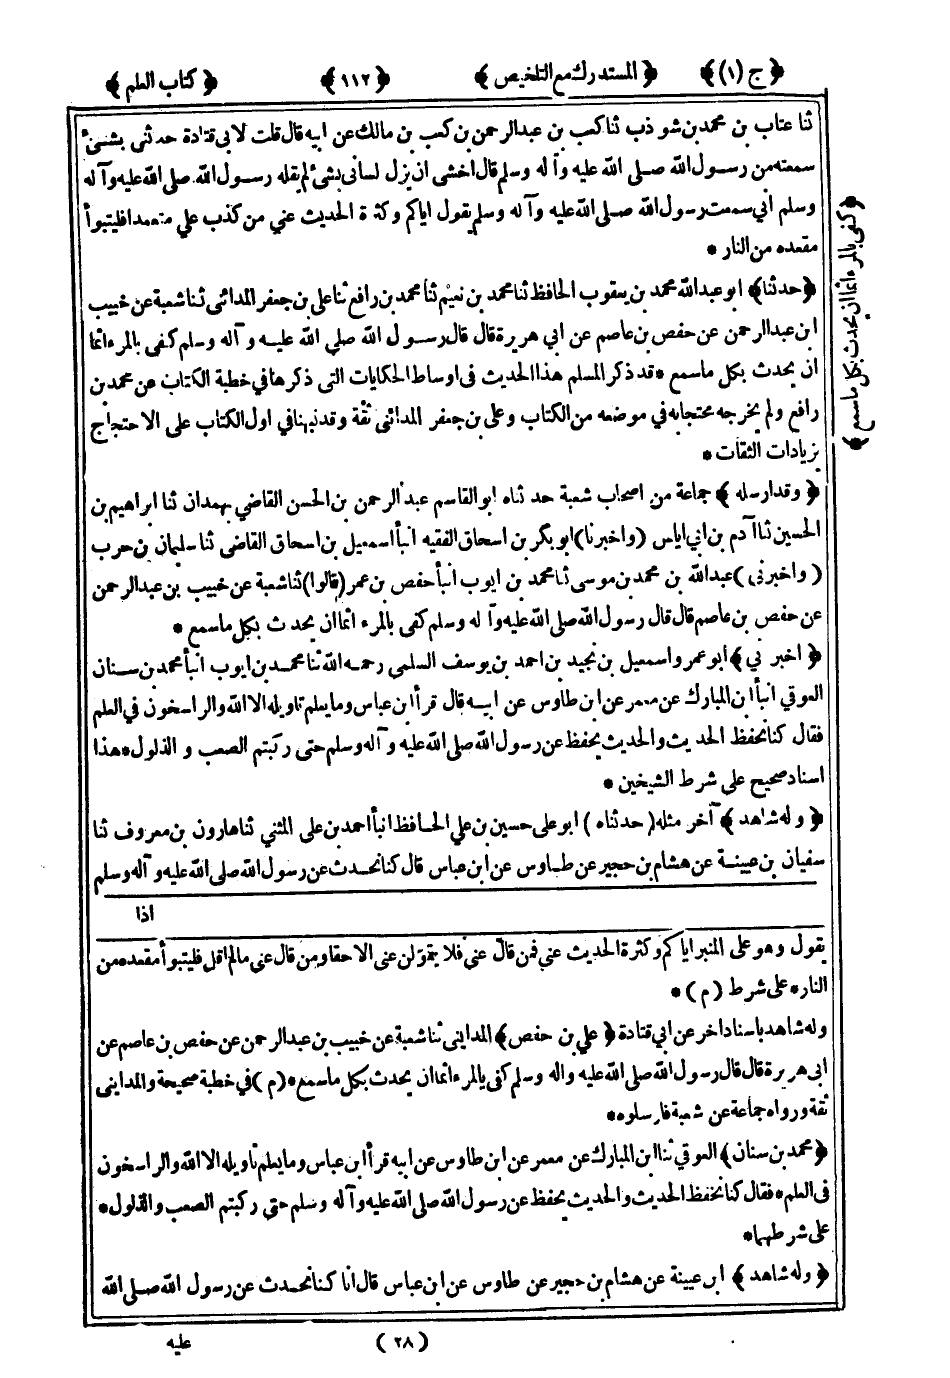 ﴿ ج (١) ﴾ ﴿ المستدرك مع التلخيص ﴾ ﴿ ١١٢ ﴾ ﴿ كتاب العلم ﴾
ثنا عتاب بن محمد بن شوذب ثنا كعب بن عبد الرحمن بن كعب بن مالك عن ابيه قال قلت لابي قتادة حدثنى بشئ
سمعته من رسول الله صلى الله عليه وآله وسلم قال اخشى ان يزل لسانى بشئ لم يقله رسول الله صلى الله عليه وآله
وسلم انى سمعت رسول الله صلى الله عليه وآله وسلم يقول اياكم وكثرة الحديث عني من كذب علي متعمدا فليتبوأ
مقعده من النار *
﴿ حدثنا ﴾ ابو عبد الله محمد بن يعقوب الحافظ ثنا محمد بن نعيم ثنا محمد بن رافع ثنا على بن جعفر المدائنى ثنا شعبة عن خبيب
ابن عبد الرحمن عن حفص بن عاصم عن ابي هريرة قال قال رسول الله صلي الله عليه وآله وسلم كفى بالمرء اثما
ان يحدث بكل ماسمع * قد ذكر المسلم هذا الحديث فى اوساط الحكايات التى ذكرها في خطبة الكتاب عن محمد بن
رافع ولم يخرجه محتجا به في موضعه من الكتاب وعلى بن جعفر المدائنى ثقة وقد نبهنا في اول الكتاب على الاحتجاج
بزيادات الثقات *
﴿ وقد ارسله ﴾ جماعة من اصحاب شعبة حدثناه ابو القاسم عبد الرحمن بن الحسن القاضي بهمدان ثنا ابراهيم بن
الحسين ثنا آدم بن ابي اياس (واخبرنا) ابو بكر بن اسحاق الفقيه انبأ اسمعيل بن اسحاق القاضى ثنا سليمان بن حرب
(واخبرني) عبد الله بن محمد بن موسى ثنا محمد بن ايوب انبأ حفص بن عمر (قالوا) ثنا شعبة عن خبيب بن عبد الرحمن
عن حفص بن عاصم قال قال رسول الله صلى الله عليه وآله وسلم كفى بالمرء اثما ان يحدث بكل ماسمع *
﴿ اخبرني ﴾ ابو عمرو اسمعيل بن نجيد بن احمد بن يوسف السلمي رحمه الله ثنا محمد بن ايوب انبأ محمد بن سنان
العوقي انبأ ابن المبارك عن معمر عن ابن طاوس عن ابيه قال قرأ ابن عباس وما يعلم تاويله الا الله والراسخون في العلم
فقال كنا نحفظ الحديث والحديث يحفظ عن رسول الله صلى الله عليه وآله وسلم حتى ركبتم الصعب و الذلول * هذا
اسناد صحيح على شرط الشيخين *
﴿ وله شاهد ﴾ آخر مثله (حدثناه) ابو على حسين بن علي الحافظ انبأ احمد بن على المثني ثنا هارون بن معروف ثنا
سفيان بن عيينة عن هشام بن حجير عن طاوس عن ابن عباس قال كنا نحدث عن رسول الله صلى الله عليه وآله وسلم
اذا
يقول وهو على المنبر اياكم وكثرة الحديث عني فمن قال عني فلا يقولن عنى الا حقا ومن قال عنى مالم اقل فليتبوأ مقعده من
النار * على شرط (م) *
وله شاهد باسناد اخر عن ابي قتادة ﴿ علي بن حفص ﴾ المداينى ثنا شعبة عن خبيب بن عبد الرحمن عن حفص بن عاصم عن
ابى هريرة قال قال رسول الله صلى الله عليه واله وسلم كفى بالمرء اثما ان يحدث بكل ماسمع * (م) في خطبة صحيحة والمداينى
ثقة ورواه جماعة عن شعبة فارسلوه *
﴿ محمد بن سنان ﴾ العوقي ثنا ابن المبارك عن معمر عن ابن طاوس عن ابيه قرأ ابن عباس وما يعلم تاويله الا الله والراسخون
فى العلم * فقال كنا نحفظ الحديث والحديث يحفظ عن رسول الله صلى الله عليه وآله وسلم حتى ركبتم الصعب والذلول *
على شرطهما *
﴿ وله شاهد ﴾ ابن عيينة عن هشام بن حجير عن طاوس عن ابن عباس قال انا كنا نحدث عن رسول الله صلى الله
(٢٨) عليه
﴿ كفى بالمرء اثما ان يحدث بكل ماسمع ﴾